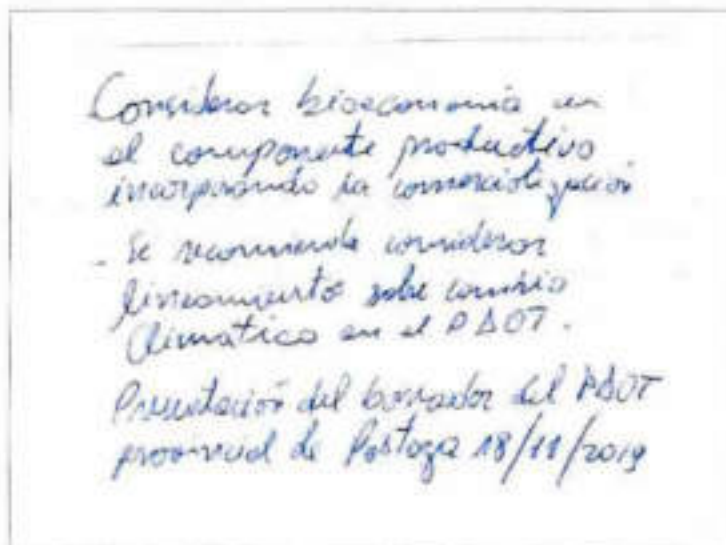 Considerar bioeconomía en
el componente productivo
incorporando la comercialización
- Se recomienda considerar
lineamientos sobre cambio
climático en el PDOT.
Presentación del borrador del PDOT
provincial de Pastaza 18/11/2019